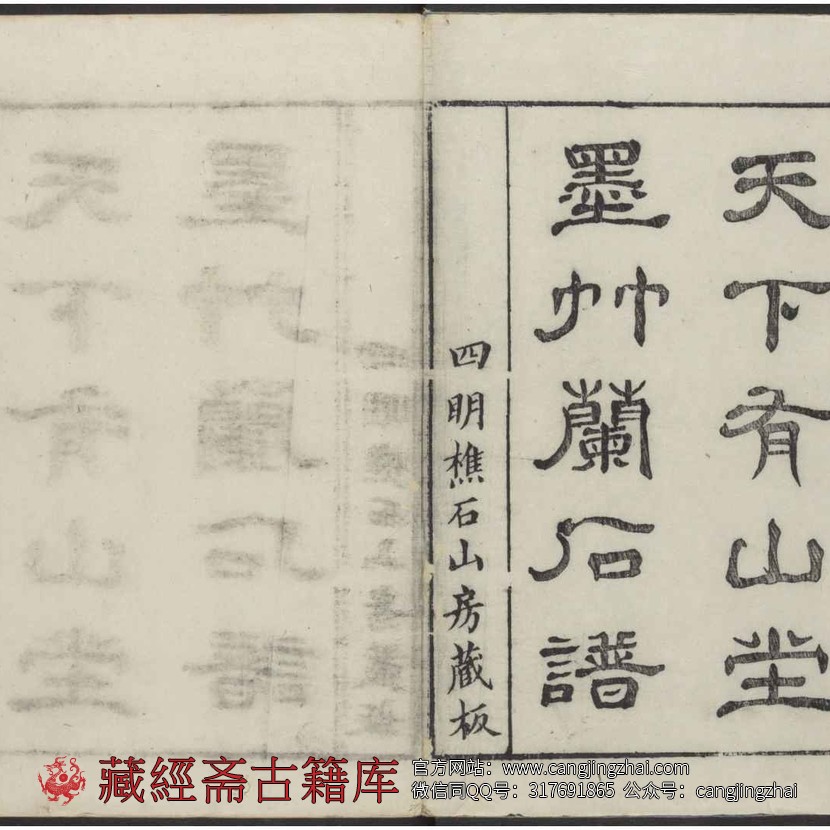 天下有山堂
墨竹蘭石譜
四明樵石山房藏板
藏經斋古籍库
官方网站：www.cangjingzhai.com
微信同QQ号：317691865 公众号：cangjingzhai